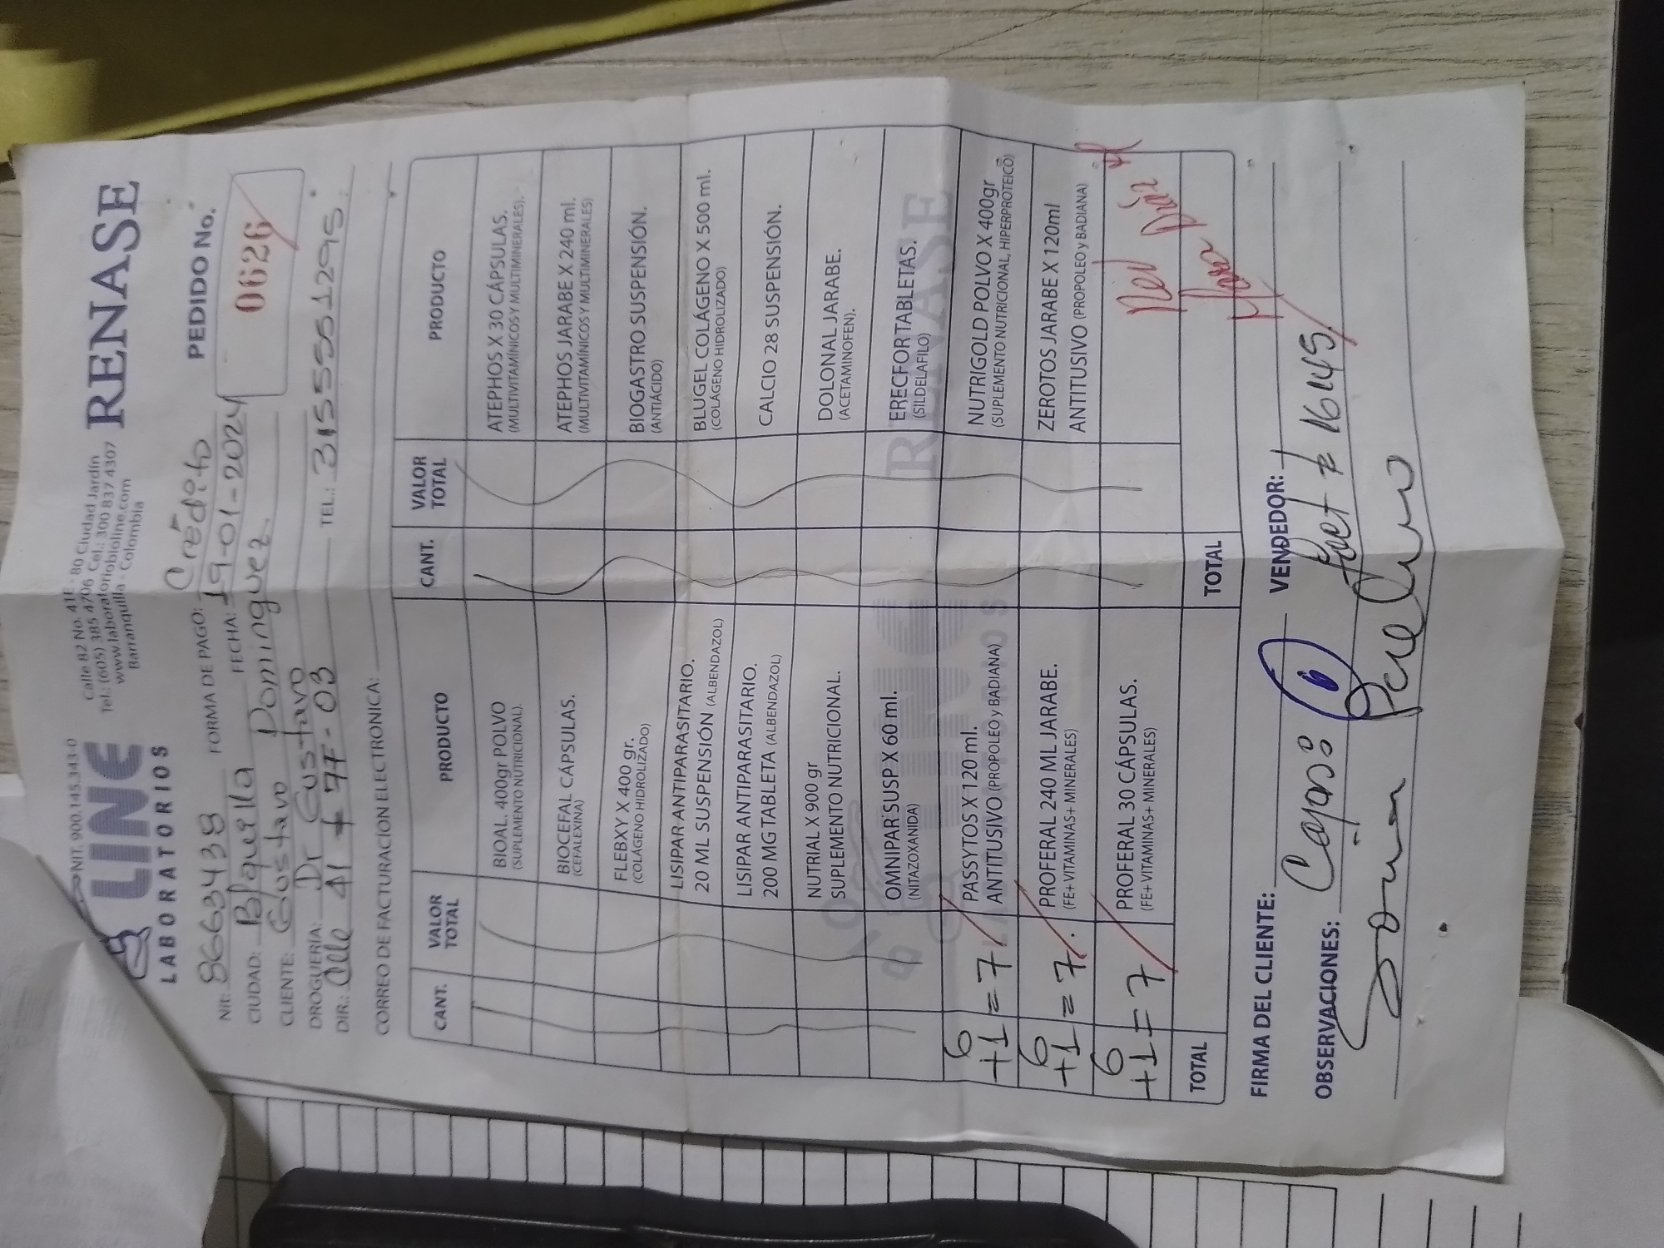 NIT. 900.145.343-0
LINE
LABORATORIOS
Calle 82 No. 41E - 80 Ciudad Jardín
Tel.: (605) 385 4706 Cel.: 300 837 4307
www.laboratoriobioline.com
Barranquilla - Colombia
RENASE
PEDIDO No.
0626
Nit: 8663438 FORMA DE PAGO: Crédito
CIUDAD: B/quilla FECHA: 19-01-2024
CLIENTE: Gustavo Dominguez
DROGUERÍA: Dr Gustavo
DIR.: Clle 41 # 7F-03 TEL.: 3155551295
CORREO DE FACTURACION ELECTRONICA:
CANT. VALOR TOTAL PRODUCTO CANT. VALOR TOTAL PRODUCTO
BIOAL. 400gr POLVO ATEPHOS X 30 CÁPSULAS.
(SUPLEMENTO NUTRICIONAL). (MULTIVITAMÍNICOS Y MULTIMINERALES).
BIOCEFAL CÁPSULAS. ATEPHOS JARABE X 240 ml.
(CEFALEXINA) (MULTIVITAMÍNICOS Y MULTIMINERALES)
FLEBXY X 400 gr. BIOGASTRO SUSPENSIÓN.
(COLÁGENO HIDROLIZADO) (ANTIÁCIDO)
LISIPAR ANTIPARASITARIO. BLUGEL COLÁGENO X 500 ml.
20 ML SUSPENSIÓN (ALBENDAZOL) (COLÁGENO HIDROLIZADO)
LISIPAR ANTIPARASITARIO. CALCIO 28 SUSPENSIÓN.
200 MG TABLETA (ALBENDAZOL)
NUTRIAL X 900 gr DOLONAL JARABE.
SUPLEMENTO NUTRICIONAL. (ACETAMINOFEN).
OMNIPAR SUSP X 60 ml. ERECFORTABLETAS.
(NITAZOXANIDA) (SILDELAFILO)
6 +1=7 PASSYTOS X 120 ml. NUTRIGOLD POLVO X 400gr
ANTITUSIVO (PROPOLEO y BADIANA) (SUPLEMENTO NUTRICIONAL, HIPERPROTEICO)
6 +1=7 PROFERAL 240 ML JARABE. ZEROTOS JARABE X 120ml
(FE+ VITAMINAS+ MINERALES) ANTITUSIVO (PROPOLEO y BADIANA)
6 +1=7 PROFERAL 30 CÁPSULAS.
(FE+ VITAMINAS+ MINERALES)
TOTAL TOTAL
FIRMA DEL CLIENTE: VENDEDOR:
OBSERVACIONES: 6 Fact # 16145
RENASE